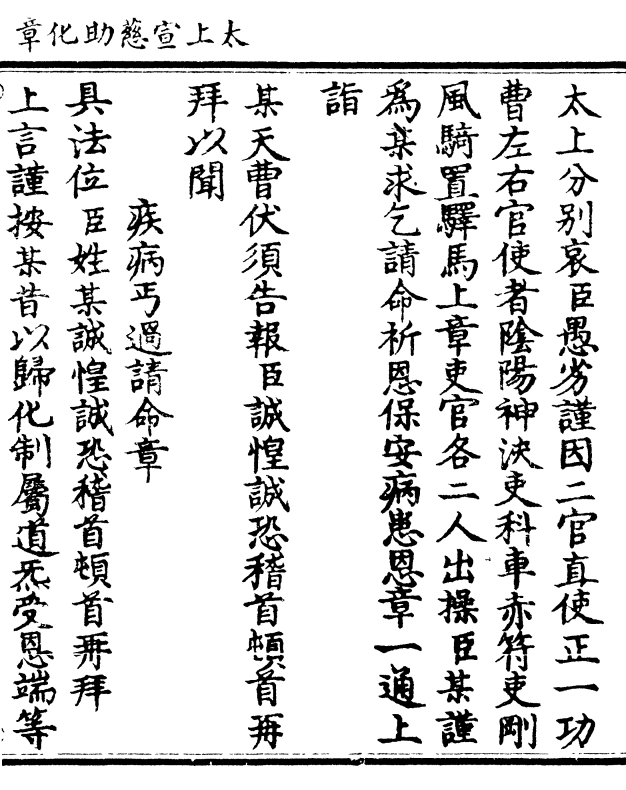 太上宣慈助化章
太上分别哀臣愚劣謹因二官直使正一功
曹左右官使者陰陽神決吏科車赤符吏剛
風騎置驛馬上章吏官各二人出操臣某謹
爲某求乞請命祈恩保安病患恩章一通上
詣
某天曹伏須告報臣誠惶誠恐稽首頓首再
拜以聞
疾病丐過請命章
具法位臣姓某誠惶誠恐稽首頓首再拜
上言謹按某昔以歸化制屬道炁受恩端等